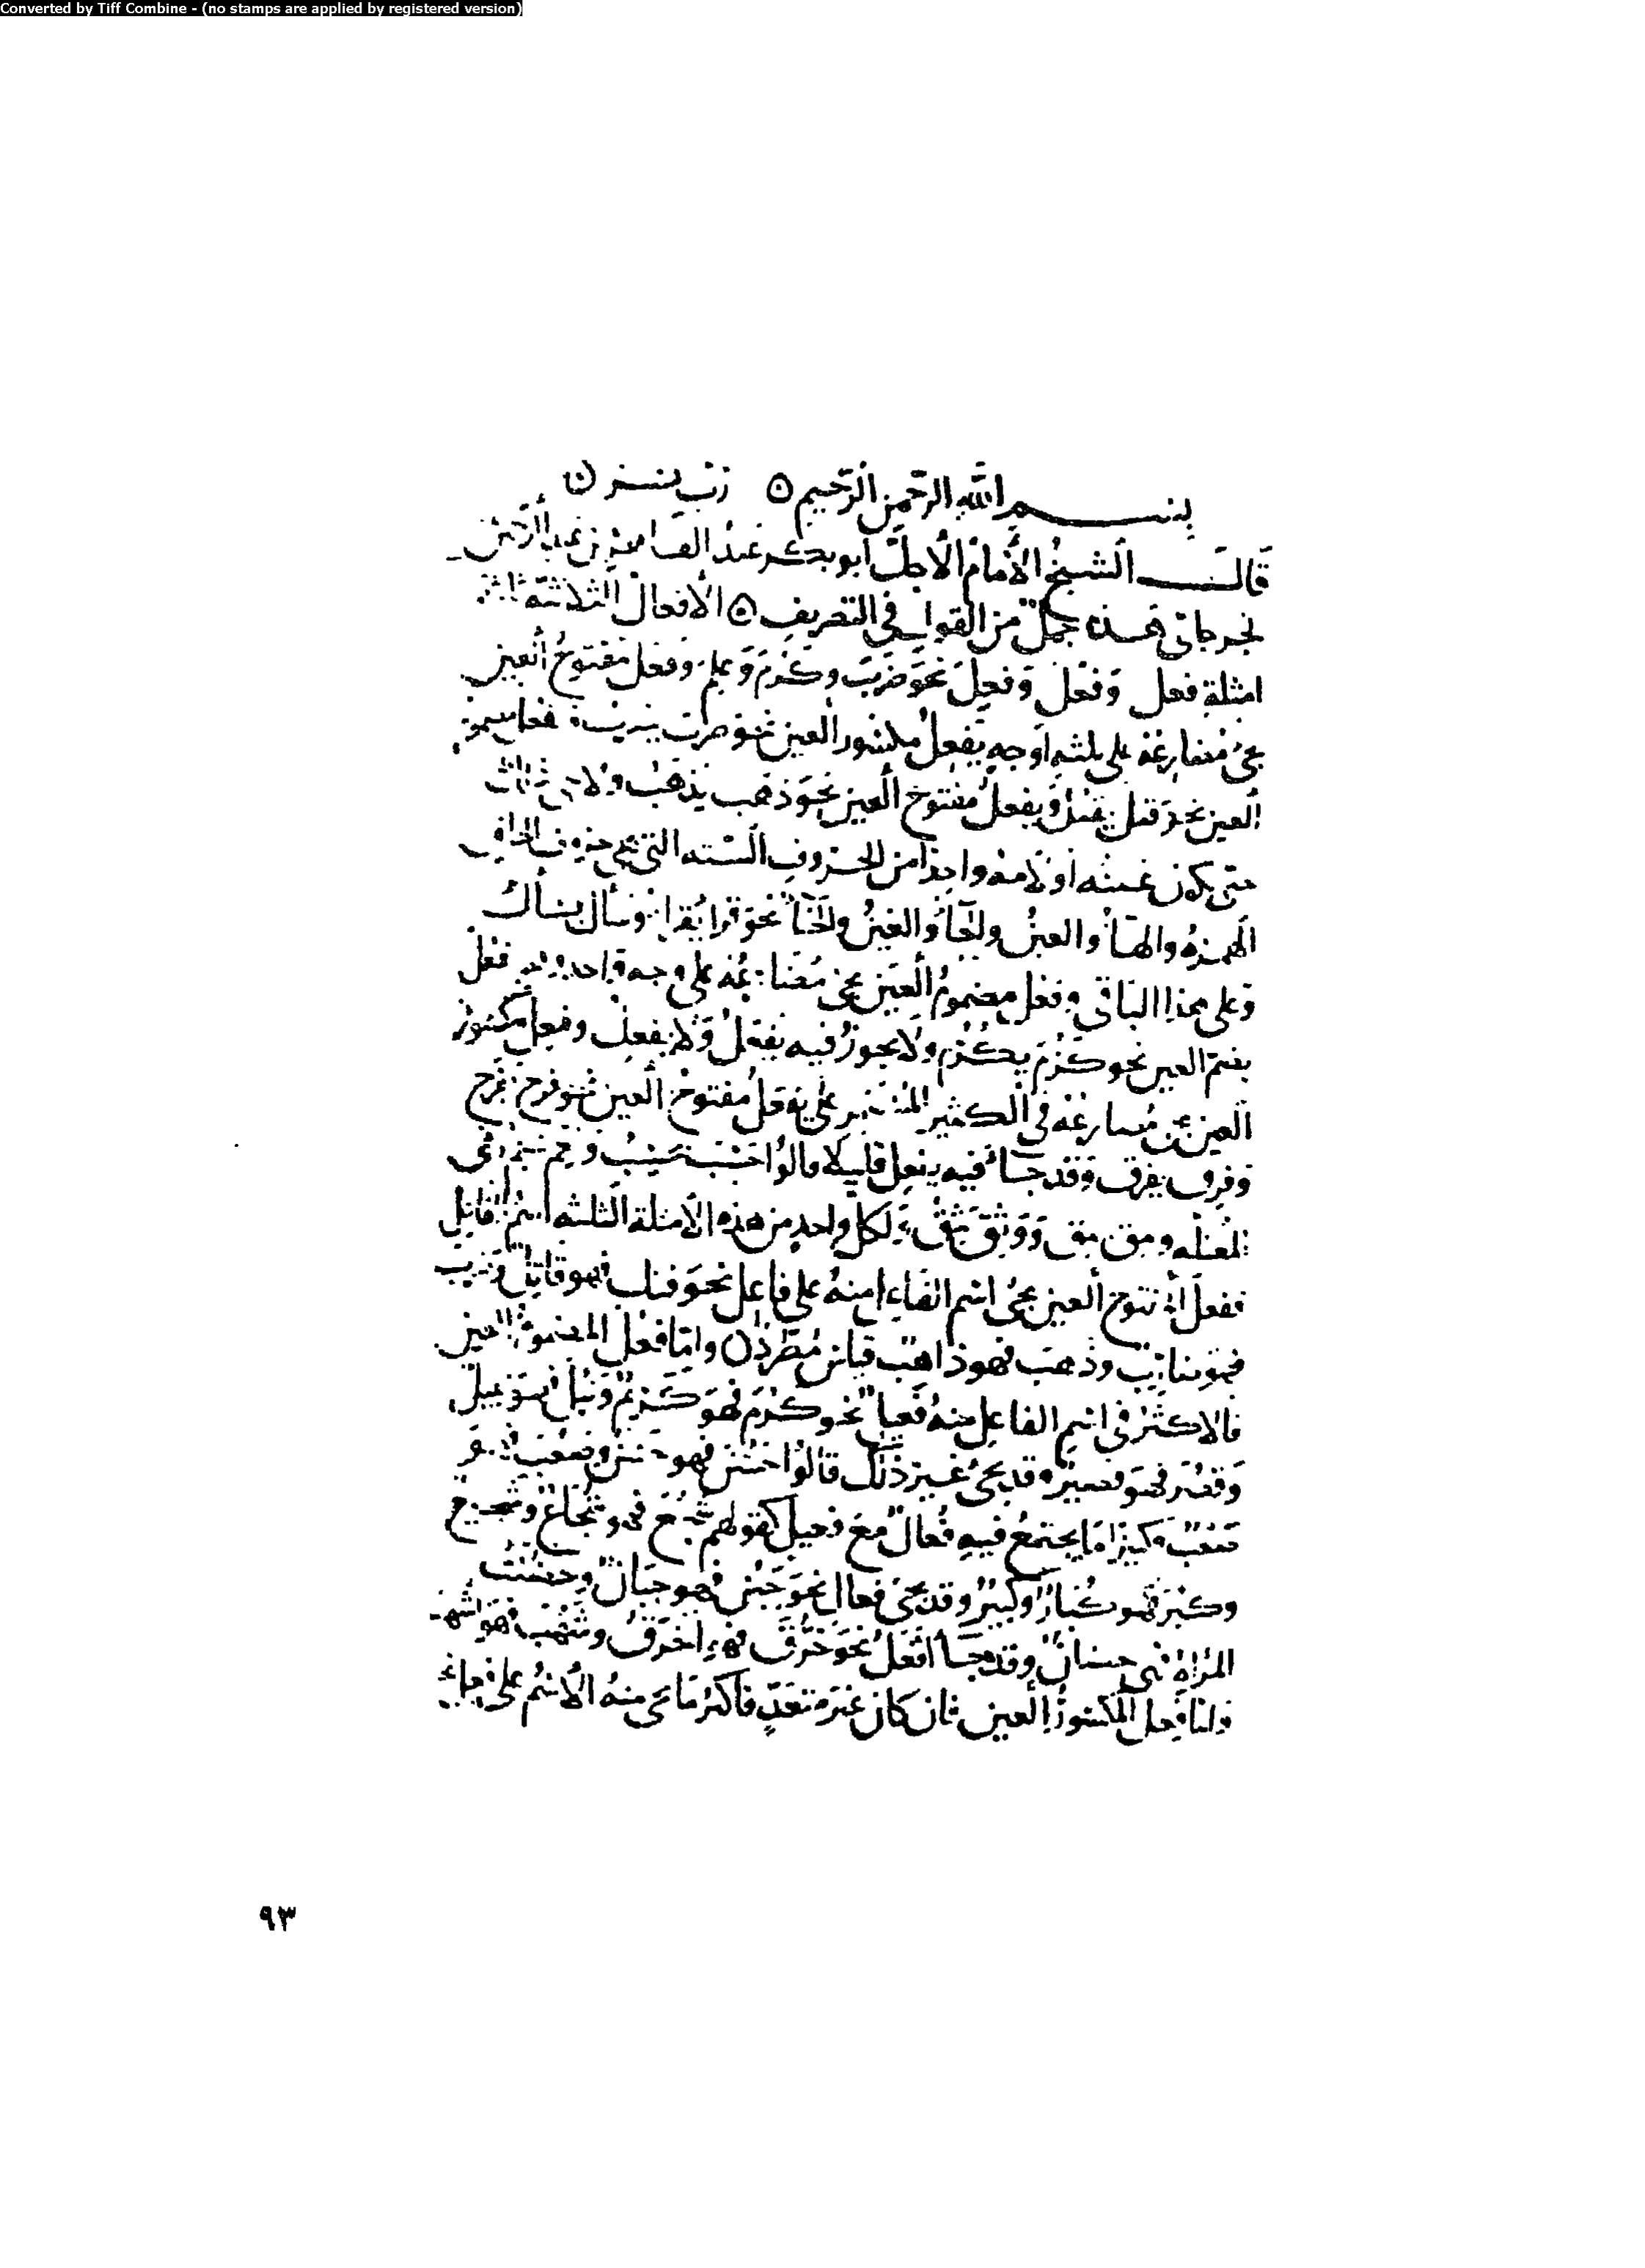 Converted by Tiff Combine - (no stamps are applied by registered version)
بسم الله الرحمن الرحيم ۝ رب يسر
قال الشيخ الإمام الأجل أبو بكر عبد القاهر بن عبد الرحمن
الجرجاني هذه جمل من القول في التصريف ۝ الأفعال الثلاثية ثلاثة
امثلة فعل وَفَعُلَ وَفَعِلَ نحو ضَرَبَ وكَرُمَ وَعلِمَ وفعل مفتوح العين
يجئ مضارعه على ثلثه اوجهٍ يَفعِلُ مكسور العين نحو ضرب يضرب ويفعل مضموم
العين نحو قتل يقتل ويفعل مفتوح العين نحو ذهب يذهب ولا
حتى يكون عينه أو لامه واحدا من الحروف الستة التي هي حروف الحلق
الهمزة والهاء والعين والحاء والغين والخاء نحو قرأ يقرأ وسأل يسأل
وعلى هذا الباقي وفعل مضموم العين يجئ مضارعه على وجه واحد وهو يفعل
بضم العين نحو كرم يكرم ولا يجوز فيه يفعل ولا يفعل وفعل مكسور
العين يجئ مضارعه في الكثير على يفعل مفتوح العين نحو فرح يفرح
وفرق يفرق وقد جاء فيه يفعل قليلا قالوا حسب يحسب وفي
المعتله ومق يمق ووثق يثق لكل واحد من هذه الأمثلة الثلثه اسم الفاعل
ففعل المفتوح العين يجئ اسم الفاعل منه على فاعل نحو قتل فهو قاتل وضرب
فهو ضارب وذهب فهو ذاهب قياس مطرد وأما فعل المضموم العين
فالاكثر في اسم الفاعل منه فعيل نحو كرم فهو كريم ونبل فهو نبيل
وقصر فهو قصير وقد يجئ غير ذلك قالوا خشن فهو خشن وصعب فهو
صعب وكثيرا ما يجتمع فيه فعال مع فعيل كقولهم شجع فهو شجاع وشجيع
وكبر فهو كبار وكبير وقد يجئ فعال نحو جبن فهو جبان وحصنت
المرأة فهي حصان وقد جاء أفعل نحو خرق فهو أخرق وشهب فهو أشهب
وأما فعل المكسور العين فان كان غير متعد فأكثر ما يجئ منه الاسم على
٩٣